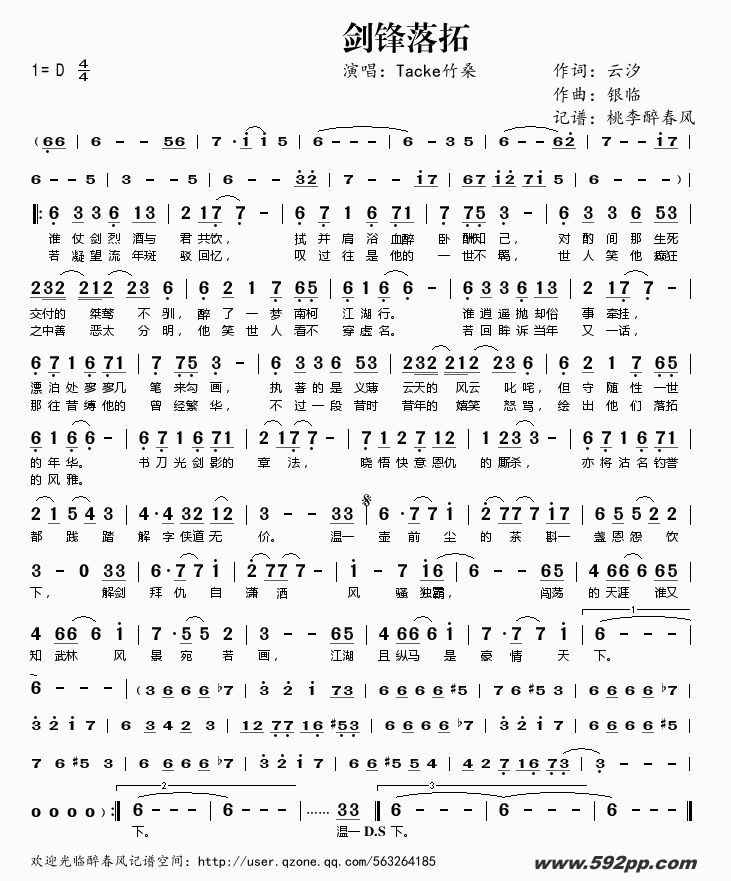 剑锋落拓
1=D 4/4 演唱：Tacke竹桑 作词：云汐
作曲：银临
记谱：桃李醉春风
(66 | 6 - - 56 | 7·i i 5 | 6 - - - | 6 - 35 | 6 - - 62 | 7 - - i7 |
6 - - 5 | 3 - - 5 | 6 - - 32 | 7 - - i7 | 67 i2 7i 5 | 6 - - - )|
‖: 6 3 3 6 13 | 2 17 7 - | 6 7 1 6 71 | 7 75 3 - | 6 3 3 6 53 |
谁仗剑烈酒与 君共饮， 拭并肩浴血醉 卧酬知己， 对酌间那生死
若凝望流年斑 驳回忆， 叹过往是他的 一世不羁， 世人笑他癫狂
232 212 23 6 | 6 2 1 7 65 | 6 1 6 - | 6 3 3 6 13 | 2 17 7 - |
交付的 桀骜 不驯，醉了一梦南柯 江湖行。 谁逍遥抛却俗 事牵挂，
之中善 恶太 分明，他笑世人看不 穿虚名。 若回眸诉当年 又一话，
6 7 1 6 71 | 7 75 3 - | 6 3 3 6 53 | 232 212 23 6 | 6 2 1 7 65 |
漂泊处寥寥几 笔来勾画， 执著的是义薄 云天的风云 叱咤，但守随性一世
那往昔缚他的 曾经繁华， 不过一段昔时 昔年的嬉笑 怒骂，绘出他们落拓
6 1 6 6 - | 6 7 1 6 71 | 2 17 7 - | 6 7 1 2 71 | 1 23 3 - | 6 7 1 6 71 |
的年华。 书刀光剑影的 章法， 晓悟快意恩仇 的厮杀， 亦将沽名钓誉
的风雅。
2 1 5 4 3 | 4·4 32 12 | 3 - - 33 | 6·7 7 i | 2 77 7 i7 | 6 5 5 2 2 |
都践踏 解字侠道无 价。 温一 壶前尘 的茶斟一 盏恩怨饮
3 - 0 33 | 6·7 7 i | 2 77 7 - | 7 - i6 | 6 - - 65 | 4 66 6 65 |
下， 解剑 拜仇自 潇洒 风骚独霸， 闯荡 的天涯谁又
4 66 6 i | 7·5 5 2 | 3 - - 65 | 4 66 6 i | 7·7 7 i | 6 - - - |
知武林风 景宛若 画， 江湖 且纵马是 豪情天 下。
6 - - - | (3 6 6 6 b7 | 3 2 i 73 | 6 6 6 6 #5 | 7 #5 5 3 | 6 6 6 6 b7 |
3 2 i 7 | 6 3 4 2 3 | 12 77 16 #53 | 6 6 6 6 b7 | 3 2 i 7 | 6 6 6 6 #5 |
7 6 #5 3 | 6 6 6 6 b7 | 3 2 i 7 | 6 6 #5 5 4 | 4 2 7 16 73 | 3 - - - |
0 0 0 0) :‖ 6 - - - | 6 - - - | …… 33 ‖ 6 - - - | 6 - - - | 6 - - - ‖
下。 温一 D.S 下。
欢迎光临醉春风记谱空间：http://user.qzone.qq.com/563264185
www.592pp.com